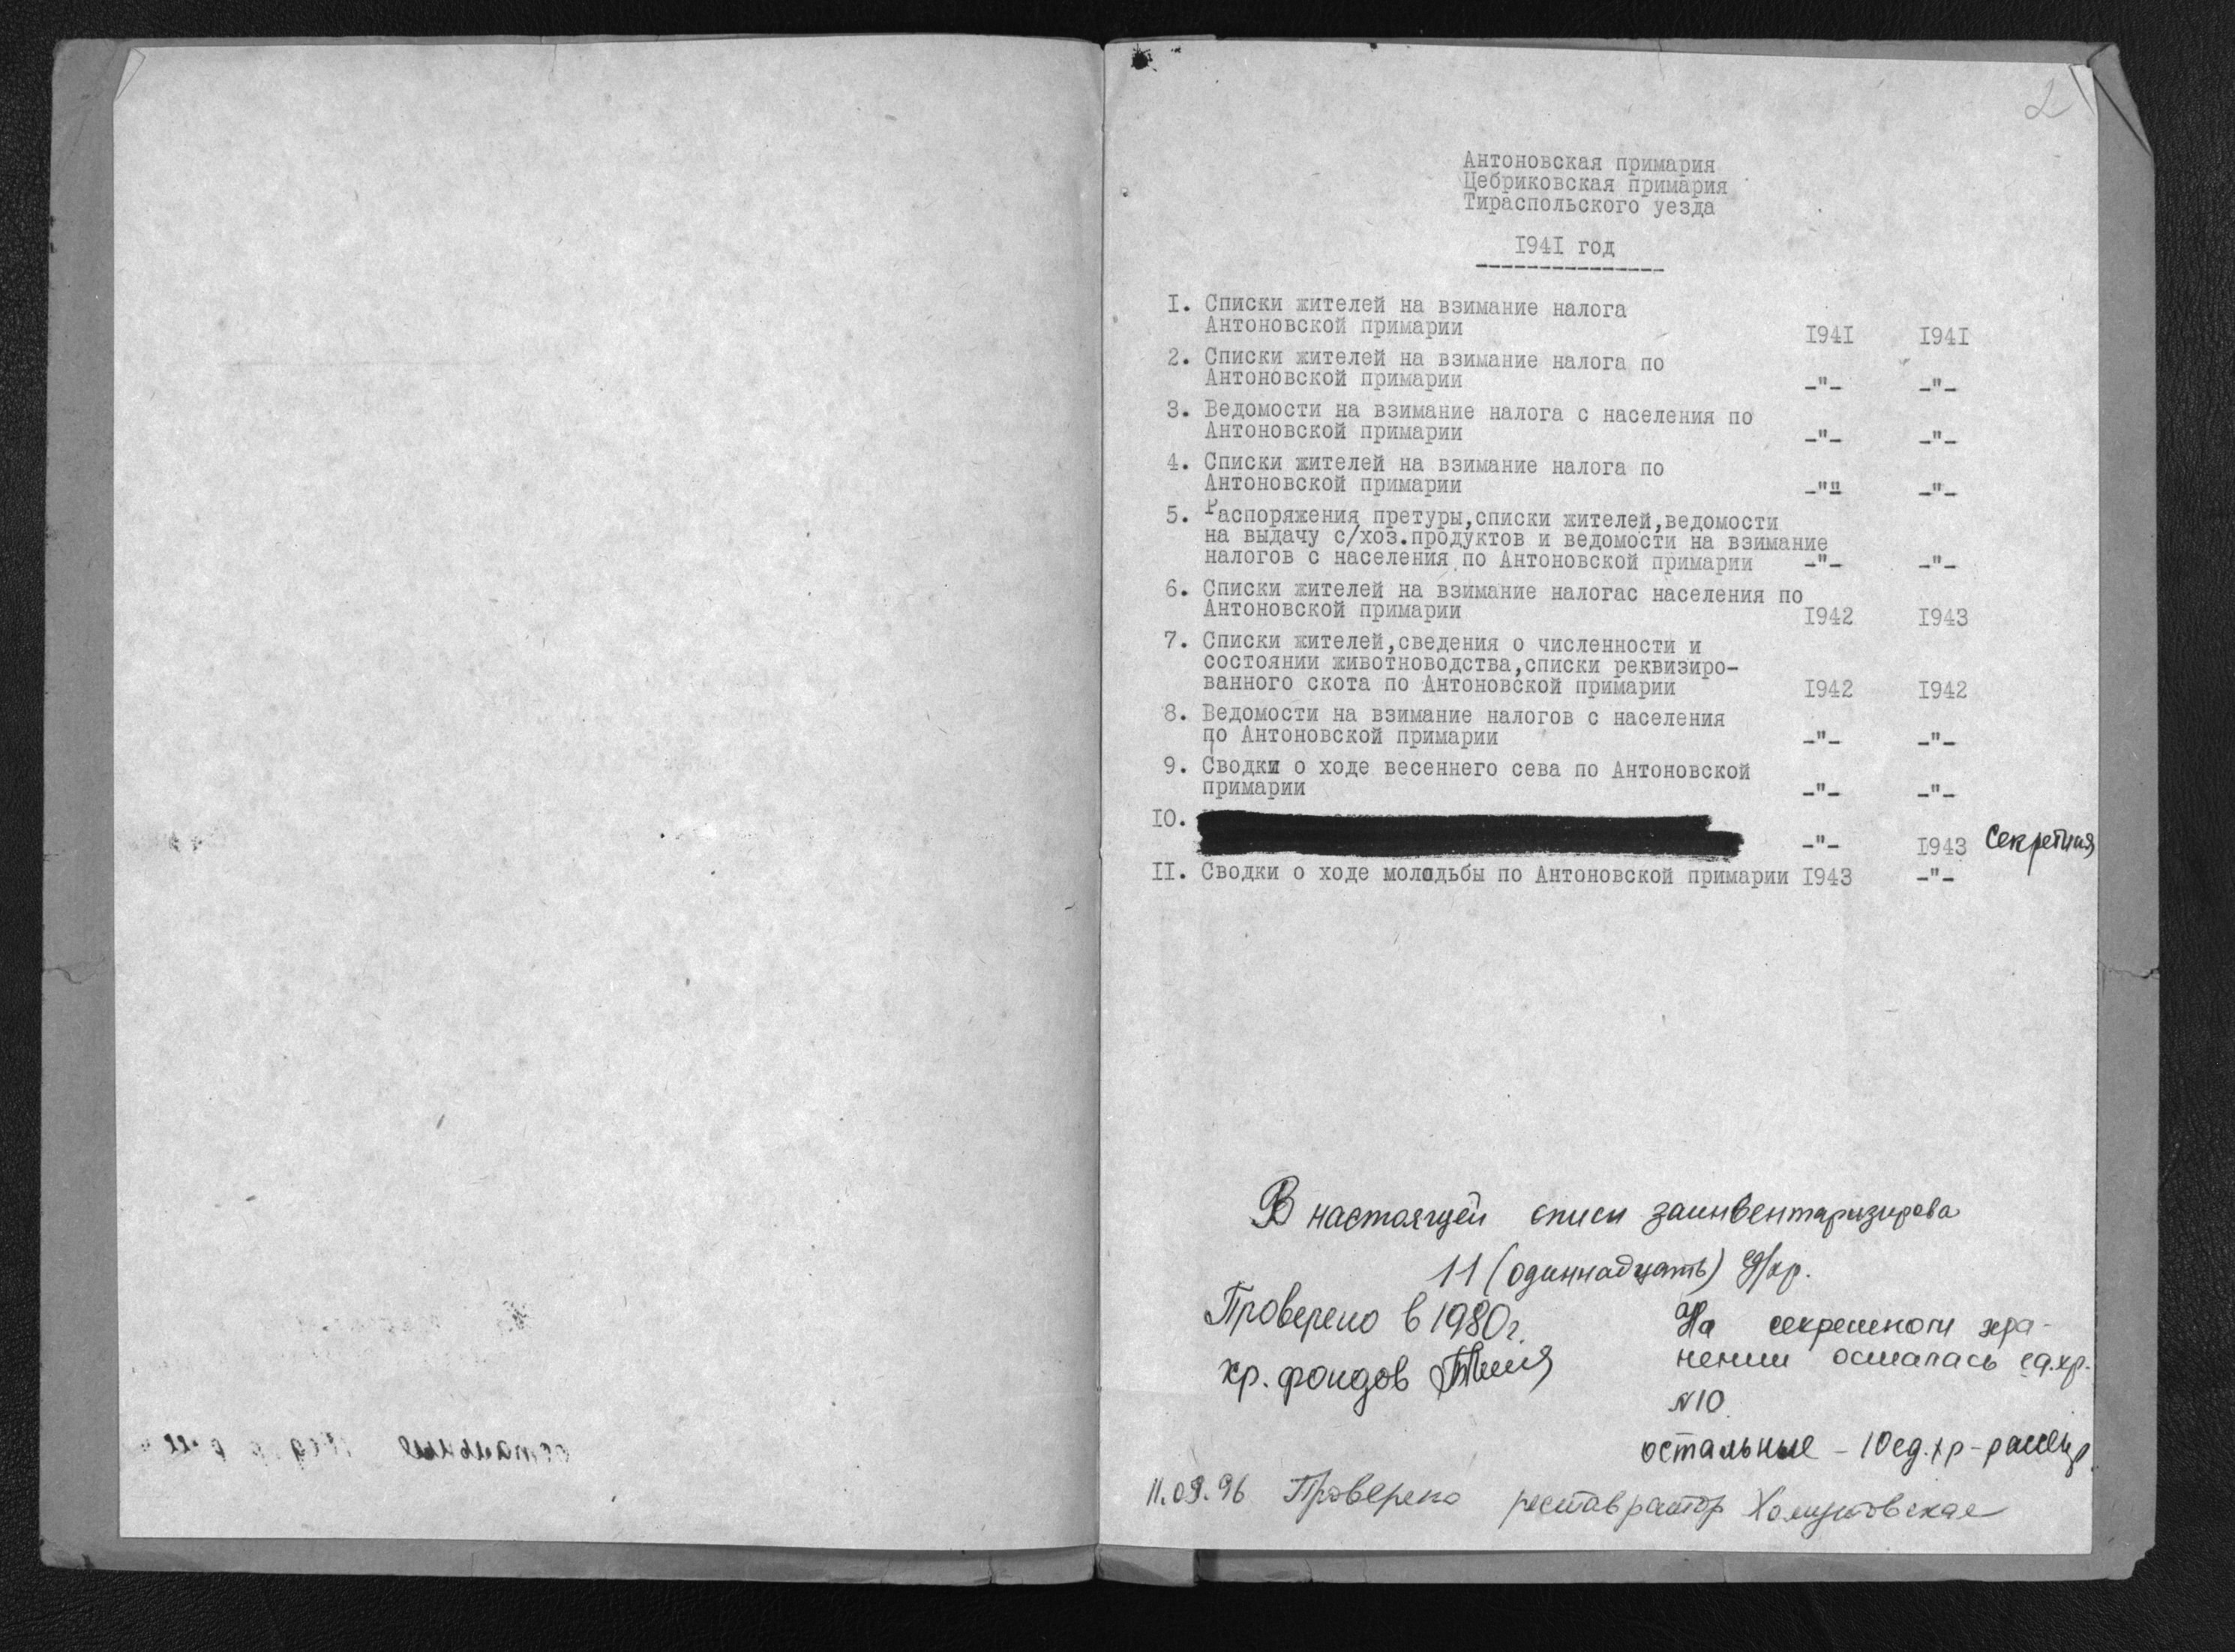 2
Антоновская примария
Цебриковская примария
Тираспольского уезда
I94I год
I. Списки жителей на взимание налога
Антоновской примарии I94I I94I
2. Списки жителей на взимание налога по
Антоновской примарии -"- -"-
3. Ведомости на взимание налога с населения по
Антоновской примарии -"- -"-
4. Списки жителей на взимание налога по
Антоновской примарии -"" -"-
5. Распоряжения претуры,списки жителей,ведомости
на выдачу с/хоз.продуктов и ведомости на взимание
налогов с населения по Антоновской примарии -"- -"-
6. Списки жителей на взимание налогас населения по
Антоновской примарии I942 I943
7. Списки жителей,сведения о численности и
состоянии животноводства,списки реквизиро-
ванного скота по Антоновской примарии I942 I942
8. Ведомости на взимание налогов с населения
по Антоновской примарии -"- -"-
9. Сводки о ходе весеннего сева по Антоновской
примарии -"- -"-
IO.
-"- I943 Секретная
II. Сводки о ходе молодьбы по Антоновской примарии I943 -"-
В настоящей описи заинвентаризирова
11 (одиннадцать) ед/хр.
Проверено в 1980г.
хр. фондов
На секретном хра-
нении осталась ед.хр.
N10
остальные - 10 ед.хр - рассекр.
11.09.96 Проверено реставратор